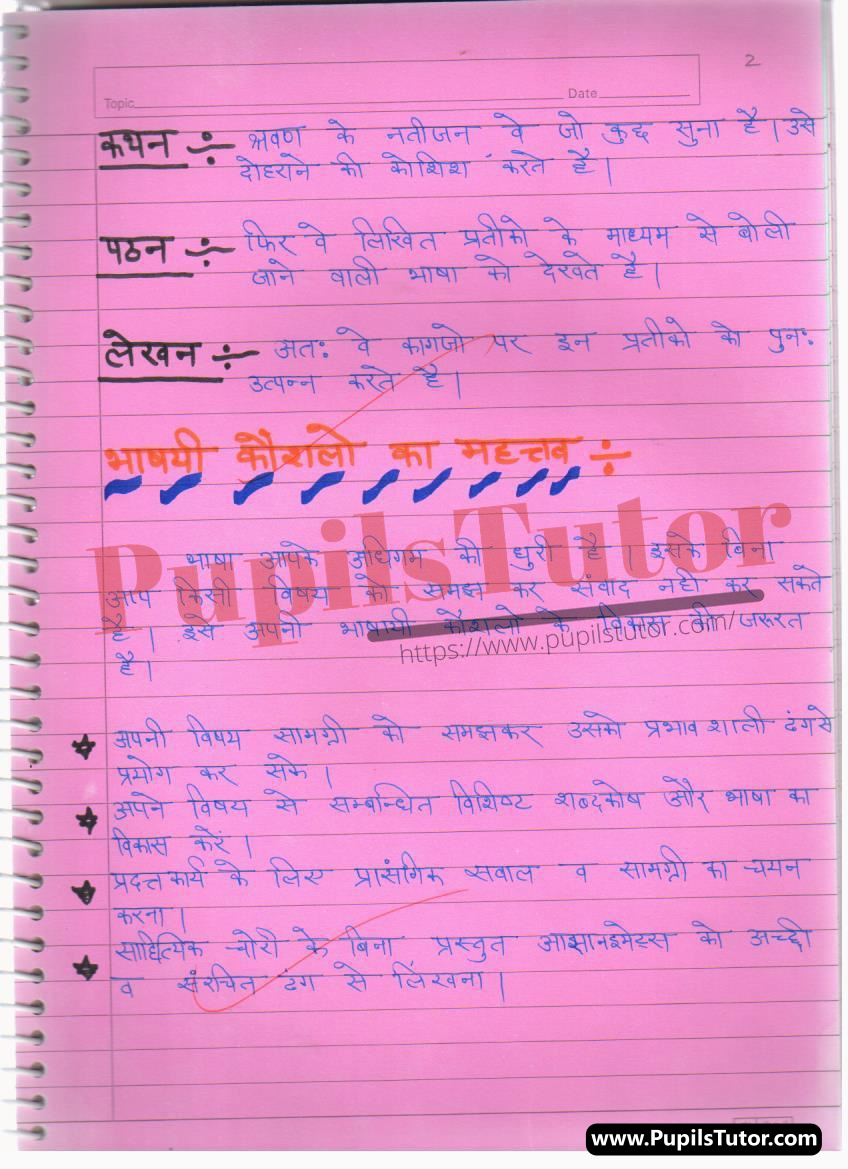 2
Topic
Date
कथन ÷ श्रवण के नतीजन वे जो कुछ सुना है। उसे
दोहराने की कोशिश करते है।
पठन ÷ फिर वे लिखित प्रतीको के माध्यम से बोली
जाने वाली भाषा को देखते है।
लेखन ÷ अतः वे कागजो पर इन प्रतीको को पुनः
उत्पन्न करते है।
भाषयी कौशलो का महत्तव ÷
PupilsTutor
भाषा आपके अधिगम की धुरी है। इसके बिना
आप किसी विषय को समझ कर संवाद नही कर सकते
है। इसे अपनी भाषायी कौशलो के विकास की जरूरत
https://www.pupilstutor.com/
है।
★ अपनी विषय सामग्री को समझकर उसको प्रभावशाली ढंगसे
प्रयोग कर सके।
★ अपने विषय से सम्बन्धित विशिष्ट शब्दकोष और भाषा का
विकास करें।
★ प्रदत्तकार्य के लिए प्रासंगिक सवाल व सामग्री का चयन
करना।
★ साहित्यिक चोरी के बिना प्रस्तुत को अच्छे
व संरचित ढंग से लिखना।
www.PupilsTutor.com